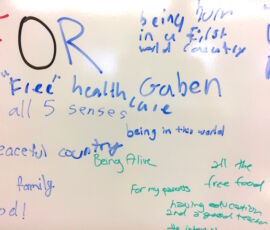 FOR
being born
in a first
world country
"Free" health care
Gaben
all 5 senses
being in this world
peaceful country
Being Alive
all the
free food
family
For my parents
having education
and a good teacher